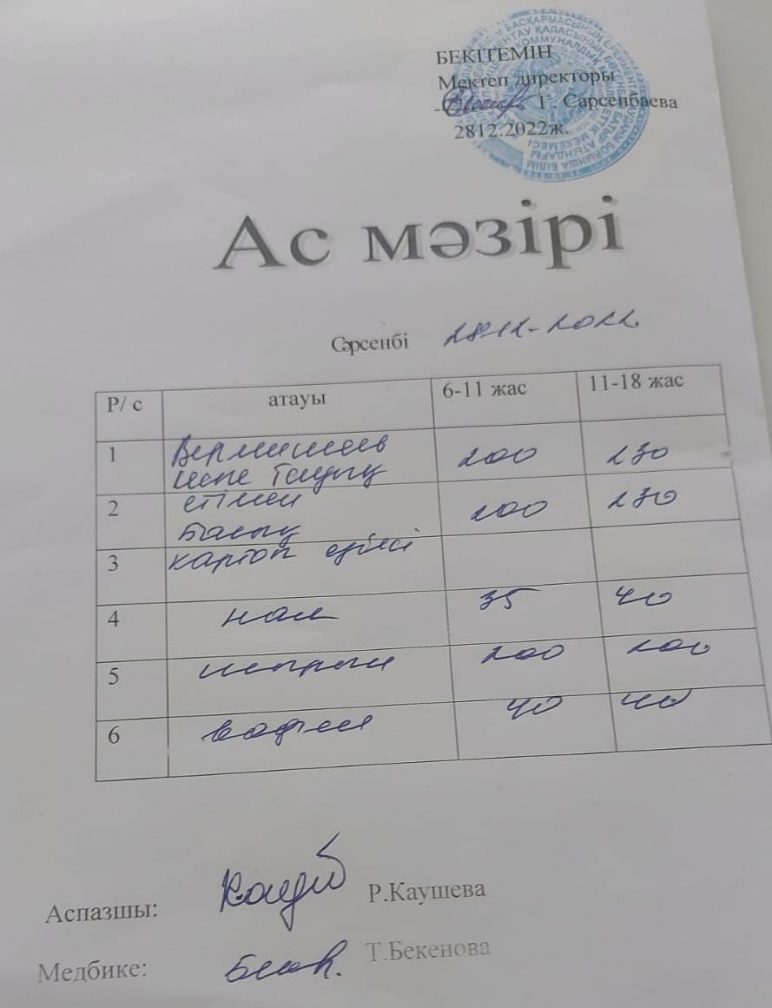 БЕКІТЕМІН
Мектеп директоры
Г. Сарсенбаева
2812.2022ж.
Ас мәзірі
Сәрсенбі 28.12-2022
Р/ с атауы 6-11 жас 11-18 жас
1 Вермишель 200 230
іспе тауық
2 етімен 200 230
балық
3 картоп езбесі
4 нан 35 40
5 шырын 200 200
6 вафли 40 40
Аспазшы: Р.Каушева
Медбике: Т.Бекенова